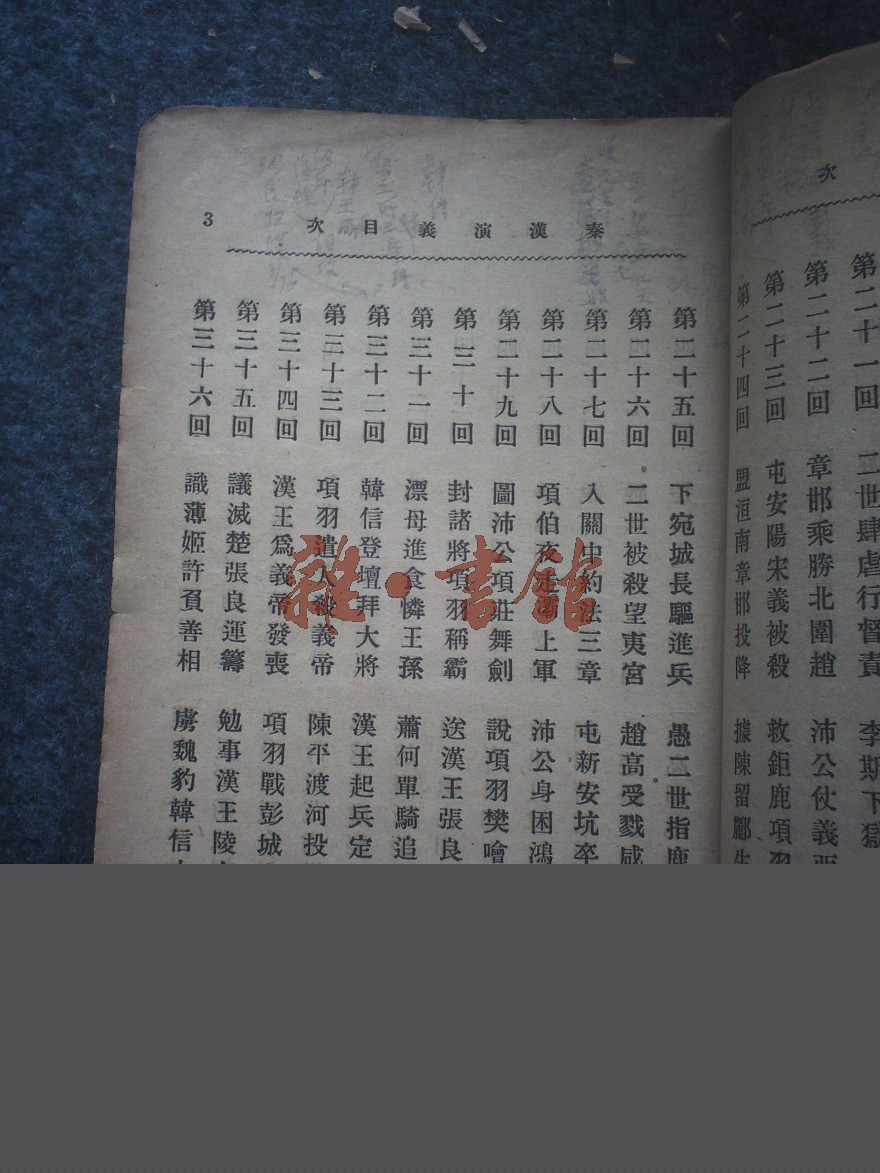 秦漢演義目次 3
第二十五回 下宛城長驅進兵 愚二世指鹿
第二十六回 二世被殺望夷宮 趙高受戮咸
第二十七回 入關中約法三章 屯新安坑卒
第二十八回 項伯夜走灞上軍 沛公身困鴻
第二十九回 圖沛公項莊舞劍 說項羽樊噲
第三十回 封諸將項羽稱霸 送漢王張良
第三十一回 漂母進食憐王孫 蕭何單騎追
第三十二回 韓信登壇拜大將 漢王起兵定
第三十三回 項羽遣人殺義帝 陳平渡河投
第三十四回 漢王爲義帝發喪 項羽戰彭城
第三十五回 議滅楚張良運籌 勉事漢王陵
第三十六回 識薄姬許負善相 虜魏豹韓信
次
第二十一回 二世肆虐行督責 李斯下獄
第二十二回 章邯乘勝北圍趙 沛公仗義西
第二十三回 屯安陽宋義被殺 救鉅鹿項羽
第二十四回 盟洹南章邯投降 據陳留酈生
雜·書館